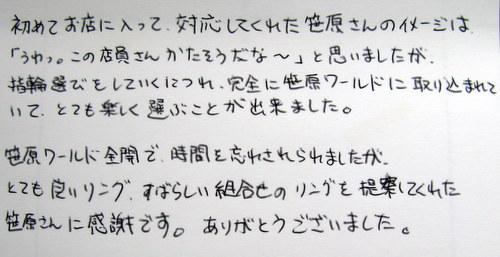 初めてお店に入って、対応してくれた笹原さんのイメージは、
「うわっ。この店員さんかたそうだな〜」と思いましたが、
指輪選びをしていくにつれ、完全に笹原ワールドに取り込まれて
いて、とても楽しく選ぶことが出来ました。
笹原ワールド全開で、時間を忘れさせられましたが、
とても良いリング、すばらしい組合せのリングを提案してくれた
笹原さんに感謝です。ありがとうございました。